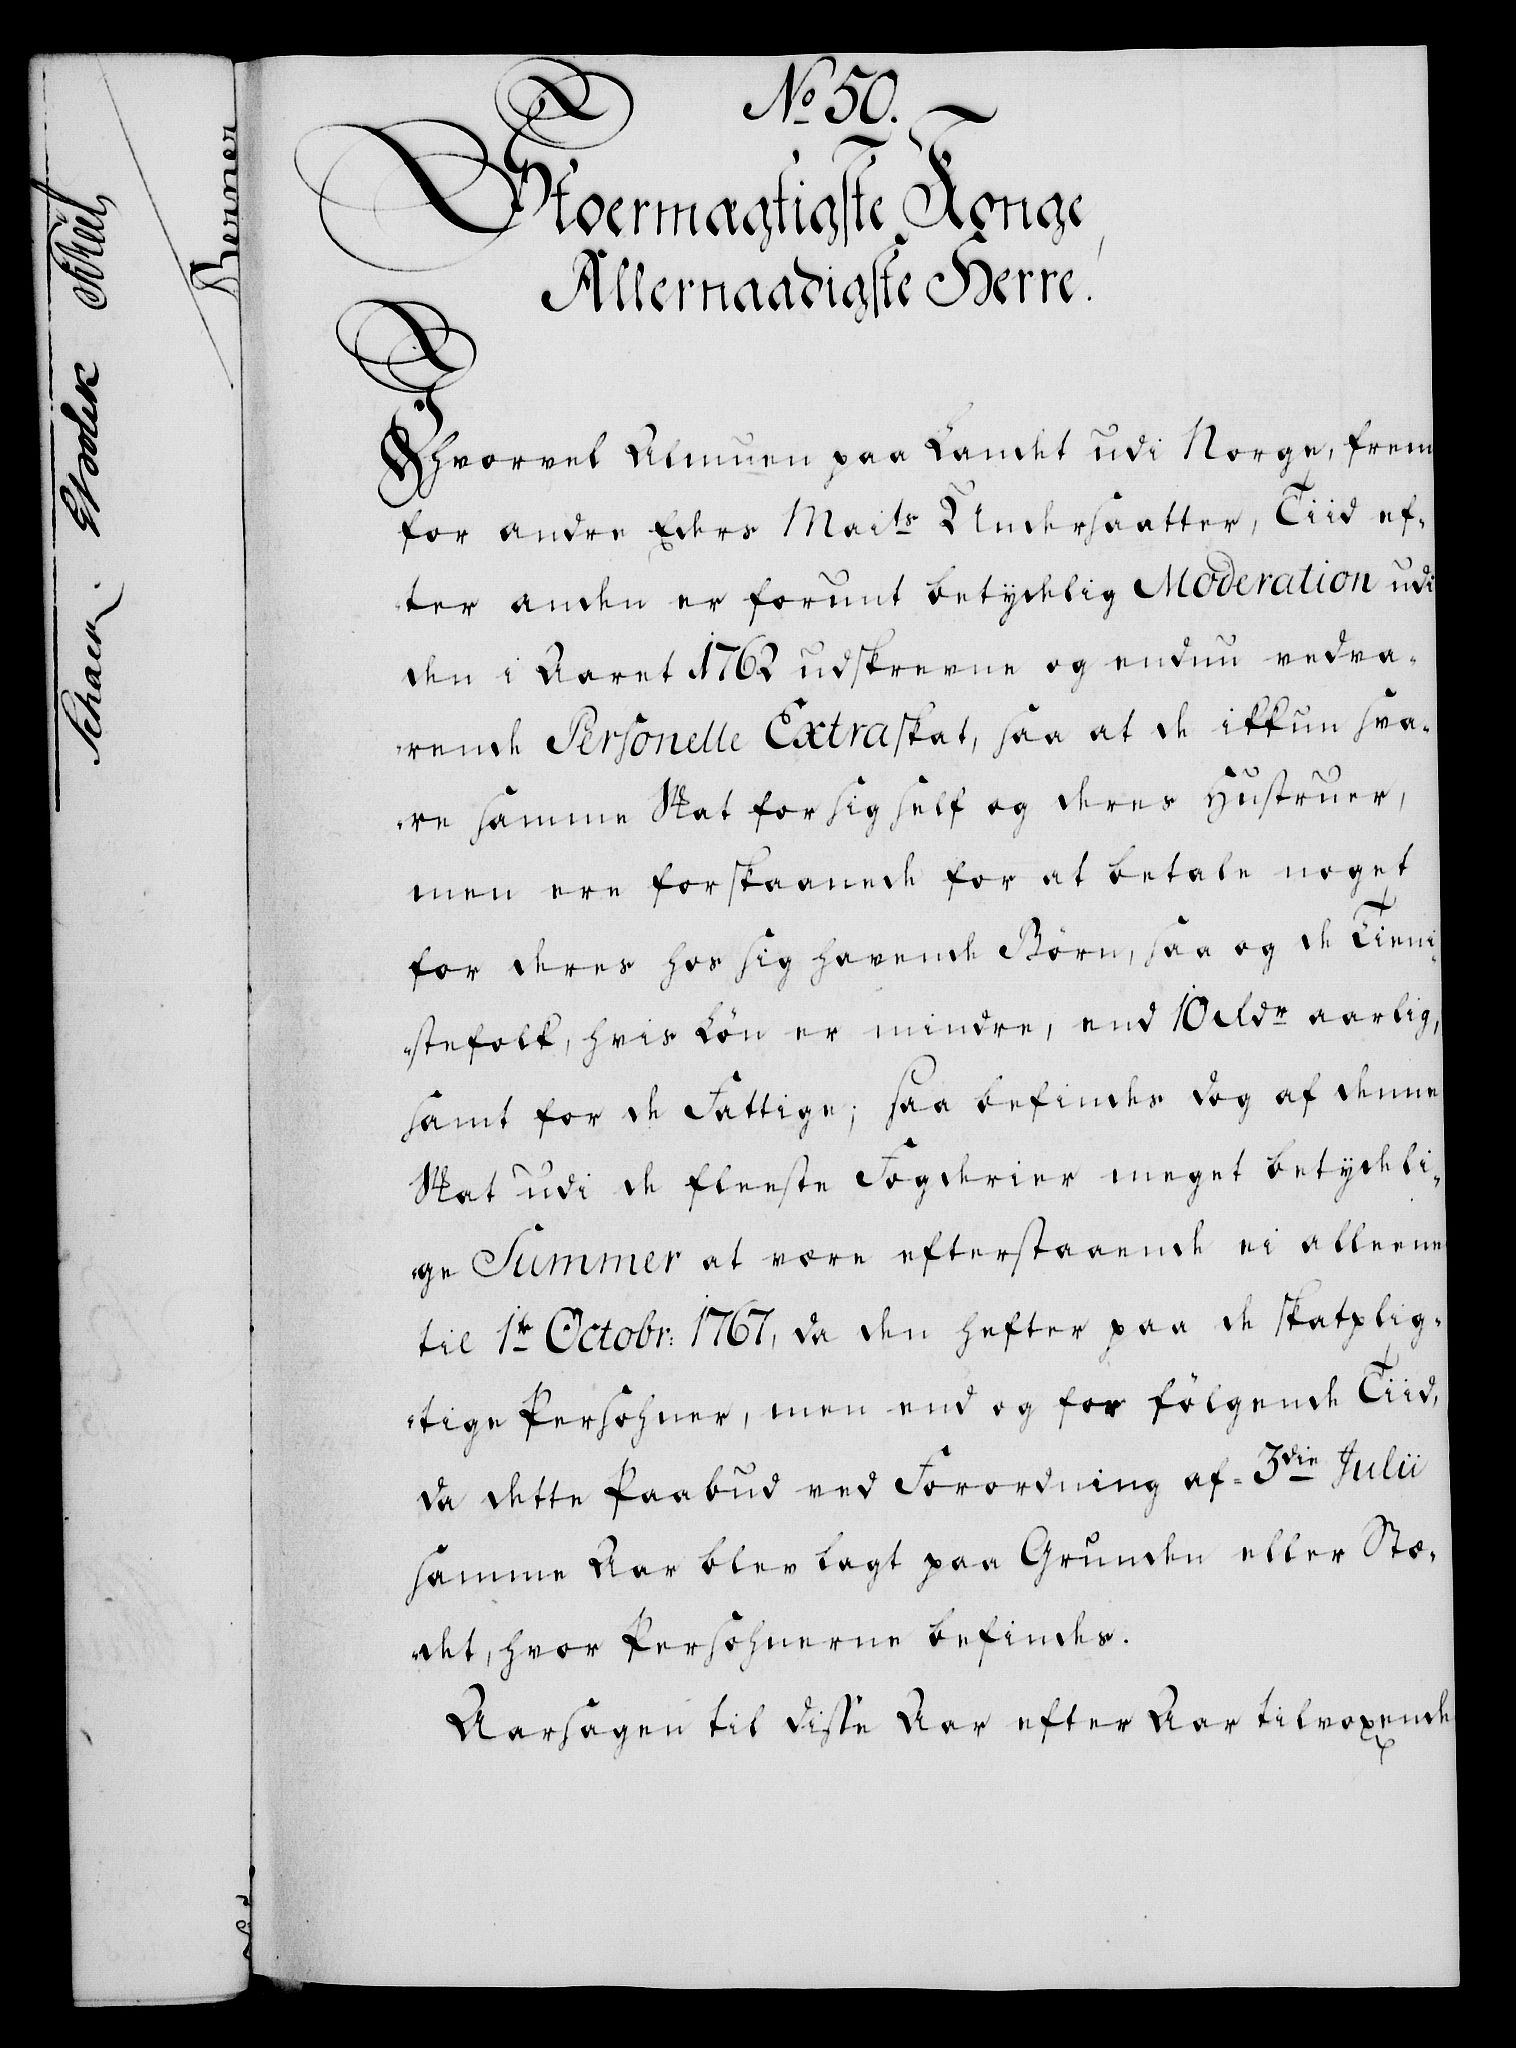 No 50.
Stoermægtigste Konge,
Allernaadigste Herre!
Ihvorvel Almuen paa Landet udi Norge, frem
for andre Eders Maits Undersaatter, Tiid ef-
ter anden er forunt betydelig Moderation udi
den i Aaret 1762 udskrevne og endnu vedva-
rende Personelle Extraskat, saa at de ikkun sva-
re samme Skat for sig self og deres Hustruer,
men ere forskaanede for at betale noget
for deres hos sig havende Børn, saa og de Tieni-
stefolk, hvis Løn er mindre, end 10 Rdr aarlig,
samt for de Fattige; saa befindes dog af denne
Skat udi de fleeste Fogderier meget betydeli-
ge Summer at være efterstaaende ei alleene
til 1te Octobr: 1767, da den hefter paa de skatplig-
tige Persohner, men end og for følgende Tiid,
da dette Paabud ved Forordning af 3die Julii
samme Aar blev lagt paa Grunden eller Stæ-
det, hvor Persohnerne befindes.
Aarsagen til disse Aar efter Aar tilvoxende
Schaer.
Skeel
Berner